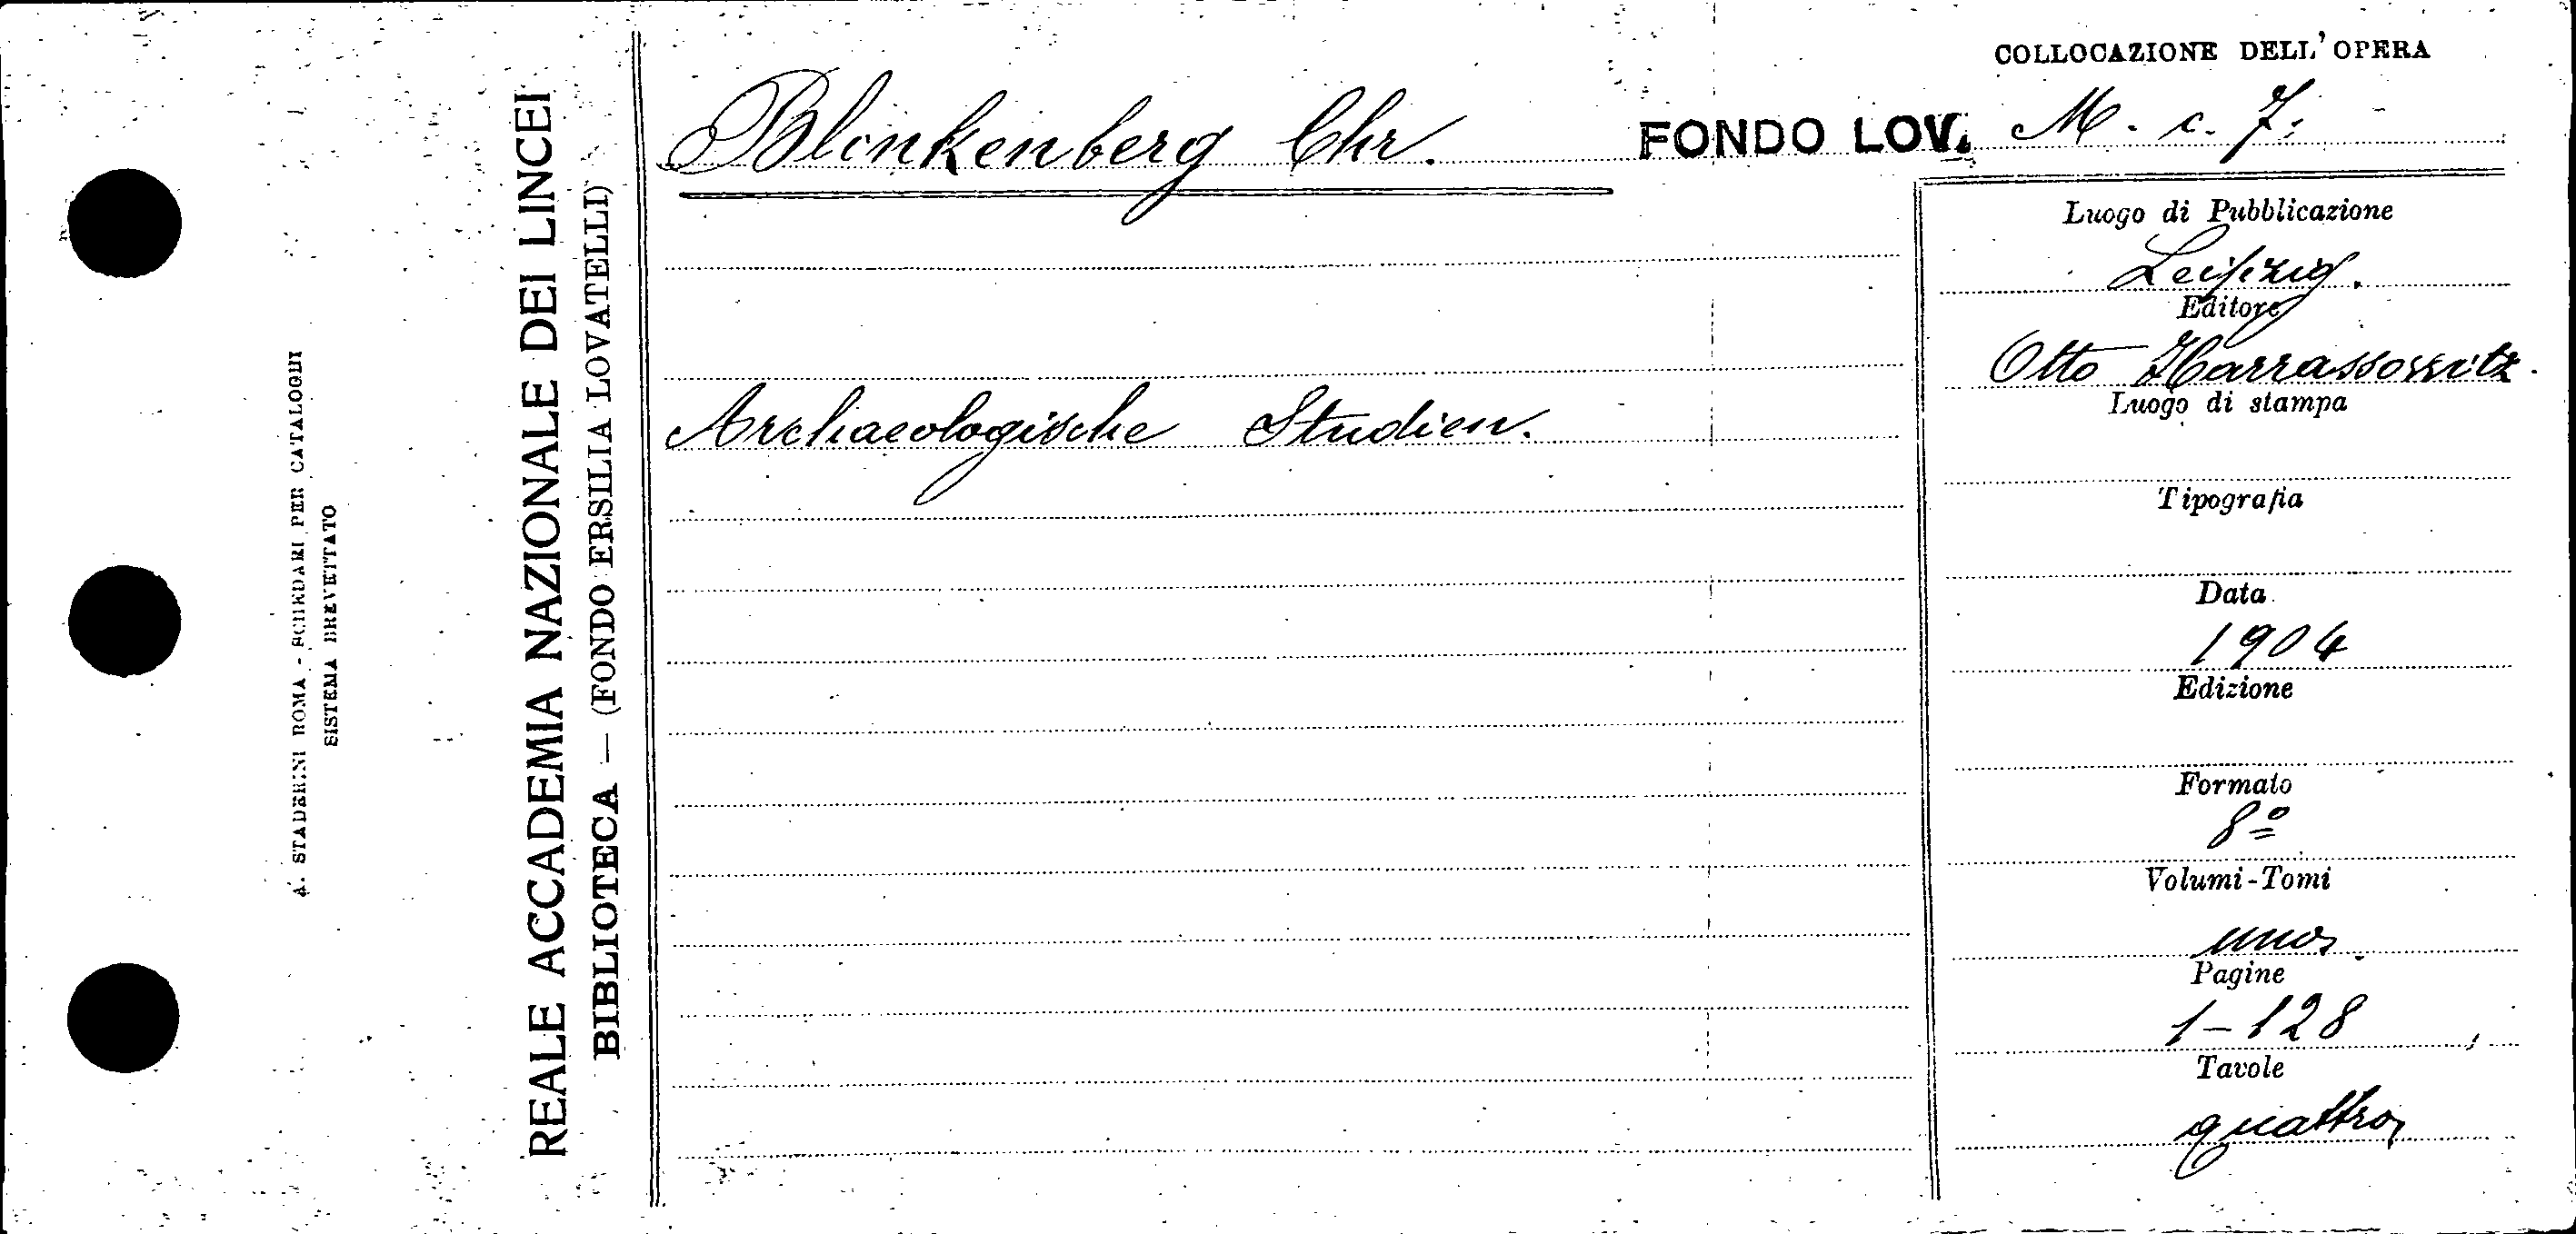 A. STADERINI ROMA - SCHEDARI PER CATALOGHI
SISTEMA BREVETTATO
REALE ACCADEMIA NAZIONALE DEI LINCEI
BIBLIOTECA — (FONDO ERSILIA LOVATELLI)
COLLOCAZIONE DELL'OPERA
Blinkenberg Chr. FONDO LOV. M. c. 7.
Luogo di Pubblicazione
Leipzig.
Editore
Otto Harrassowitz.
Luogo di stampa
Archaeologische Studien.
Tipografia
Data
1904
Edizione
Formato
8º
Volumi-Tomi
uno
Pagine
1-128
Tavole
quattro